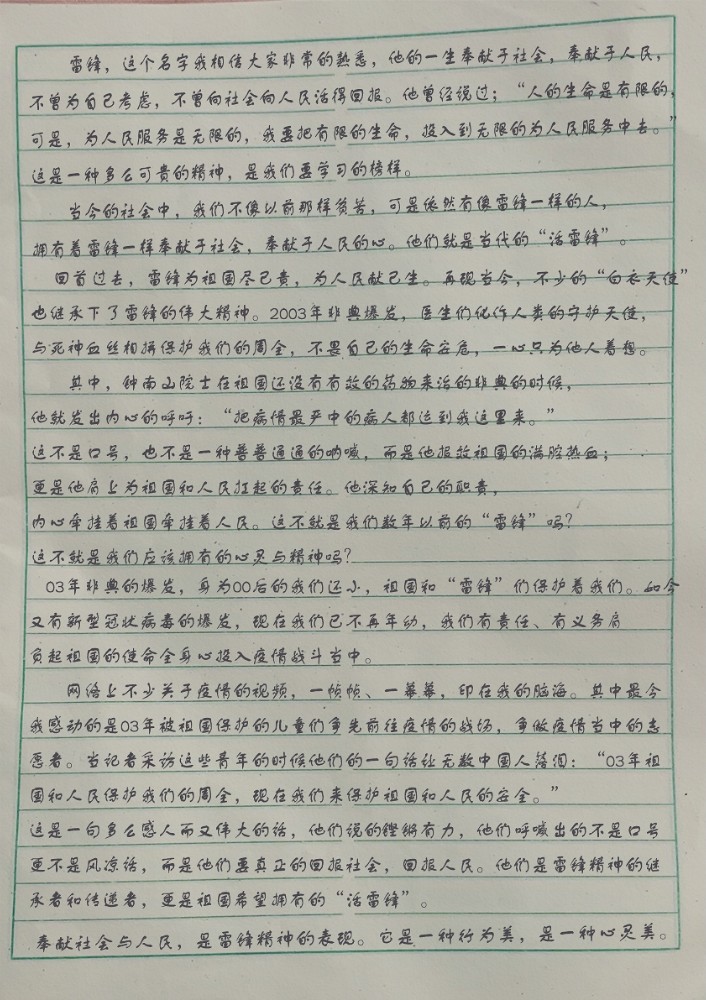 雷锋，这个名字我相信大家非常的熟悉，他的一生奉献于社会，奉献于人民，
不曾为自己考虑，不曾向社会向人民活得回报。他曾经说过；“人的生命是有限的，
可是，为人民服务是无限的，我要把有限的生命，投入到无限的为人民服务中去。”
这是一种多么可贵的精神，是我们要学习的榜样。
当今的社会中，我们不像以前那样贫苦，可是依然有像雷锋一样的人，
拥有着雷锋一样奉献于社会，奉献于人民的心。他们就是当代的“活雷锋”。
回首过去，雷锋为祖国尽己责，为人民献己生。再现当今，不少的“白衣天使”
也继承下了雷锋的伟大精神。2003年非典爆发，医生们化作人类的守护天使，
与死神血丝相拼保护我们的周全，不畏自己的生命安危，一心只为他人着想。
其中，钟南山院士在祖国还没有有效的药物来治的非典的时候，
他就发出内心的呼吁：“把病情最严中的病人都送到我这里来。”
这不是口号，也不是一种普普通通的呐喊，而是他报效祖国的满腔热血；
更是他肩上为祖国和人民扛起的责任。他深知自己的职责，
内心牵挂着祖国牵挂着人民。这不就是我们数年以前的“雷锋”吗？
这不就是我们应该拥有的心灵与精神吗？
03年非典的爆发，身为00后的我们还小，祖国和“雷锋”们保护着我们。如今
又有新型冠状病毒的爆发，现在我们已不再年幼，我们有责任、有义务肩
负起祖国的使命全身心投入疫情战斗当中。
网络上不少关于疫情的视频，一帧帧、一幕幕，印在我的脑海。其中最令
我感动的是03年被祖国保护的儿童们争先前往疫情的战场，争做疫情当中的志
愿者。当记者采访这些青年的时候他们的一句话让无数中国人落泪：“03年祖
国和人民保护我们的周全，现在我们来保护祖国和人民的安全。”
这是一句多么感人而又伟大的话，他们说的铿锵有力，他们呼喊出的不是口号
更不是风凉话，而是他们要真正的回报社会，回报人民。他们是雷锋精神的继
承者和传递者，更是祖国希望拥有的“活雷锋”。
奉献社会与人民，是雷锋精神的表现。它是一种行为美，是一种心灵美。